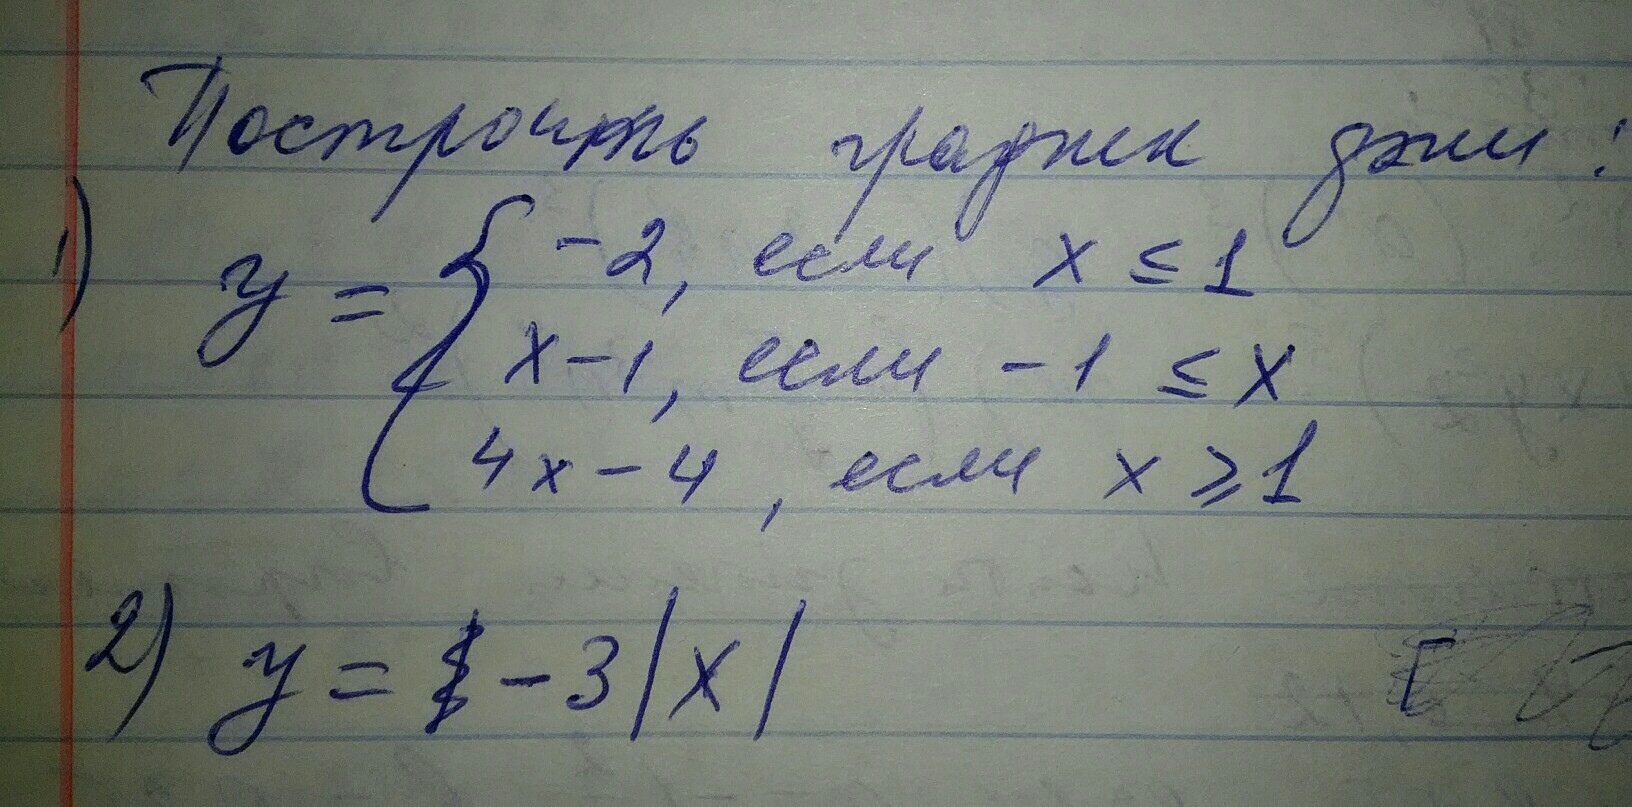 Построить график ф-ции:
1) y = { -2, если x ≤ 1
x-1, если -1 ≤ x
4x-4, если x ⩾ 1
2) y = -3|x|